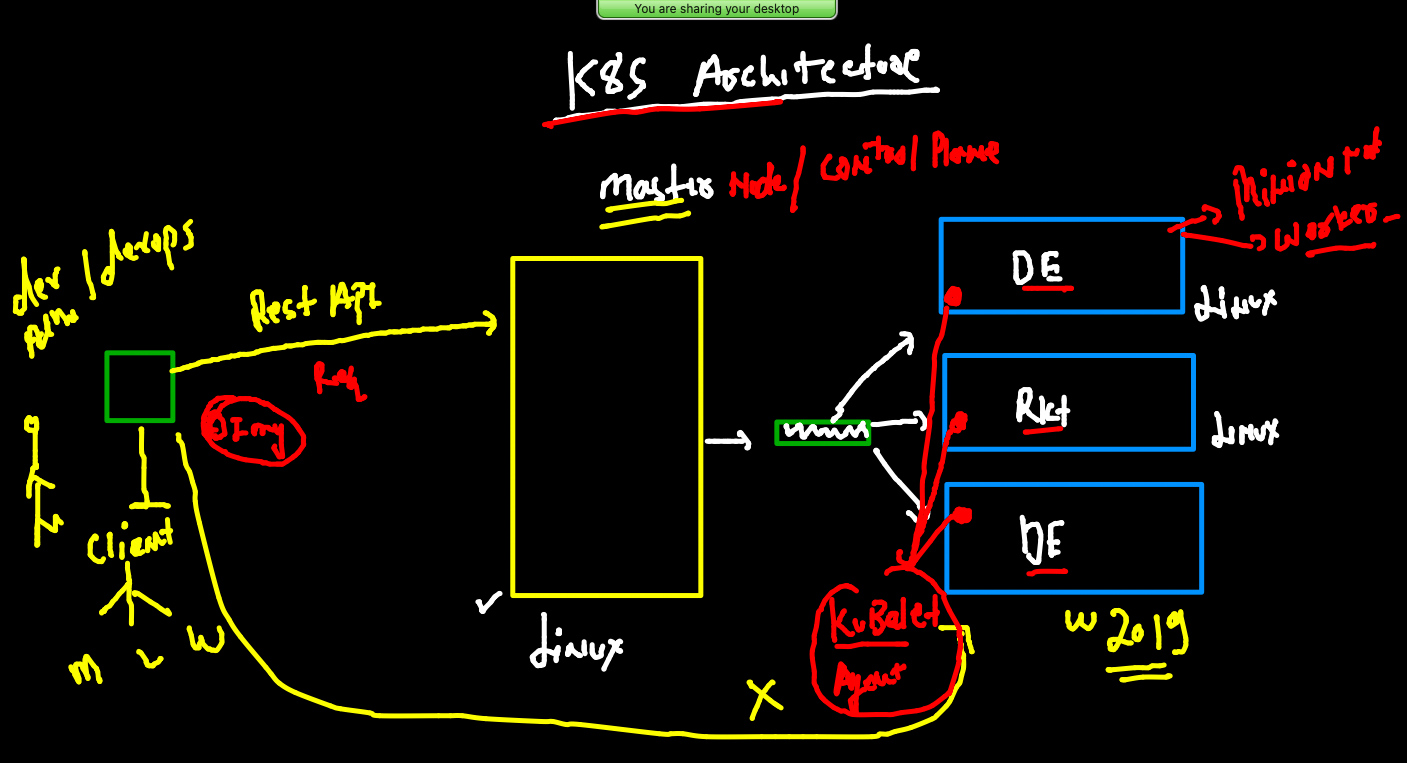 You are sharing your desktop
K8S Architecture
Master Node / Control Plane
dev / devops
Rest API
Req
Client
M L W
Linux
DE
Linux
Worker
Rkt
Linux
DE
W 2019
KuBelet
Agent
X